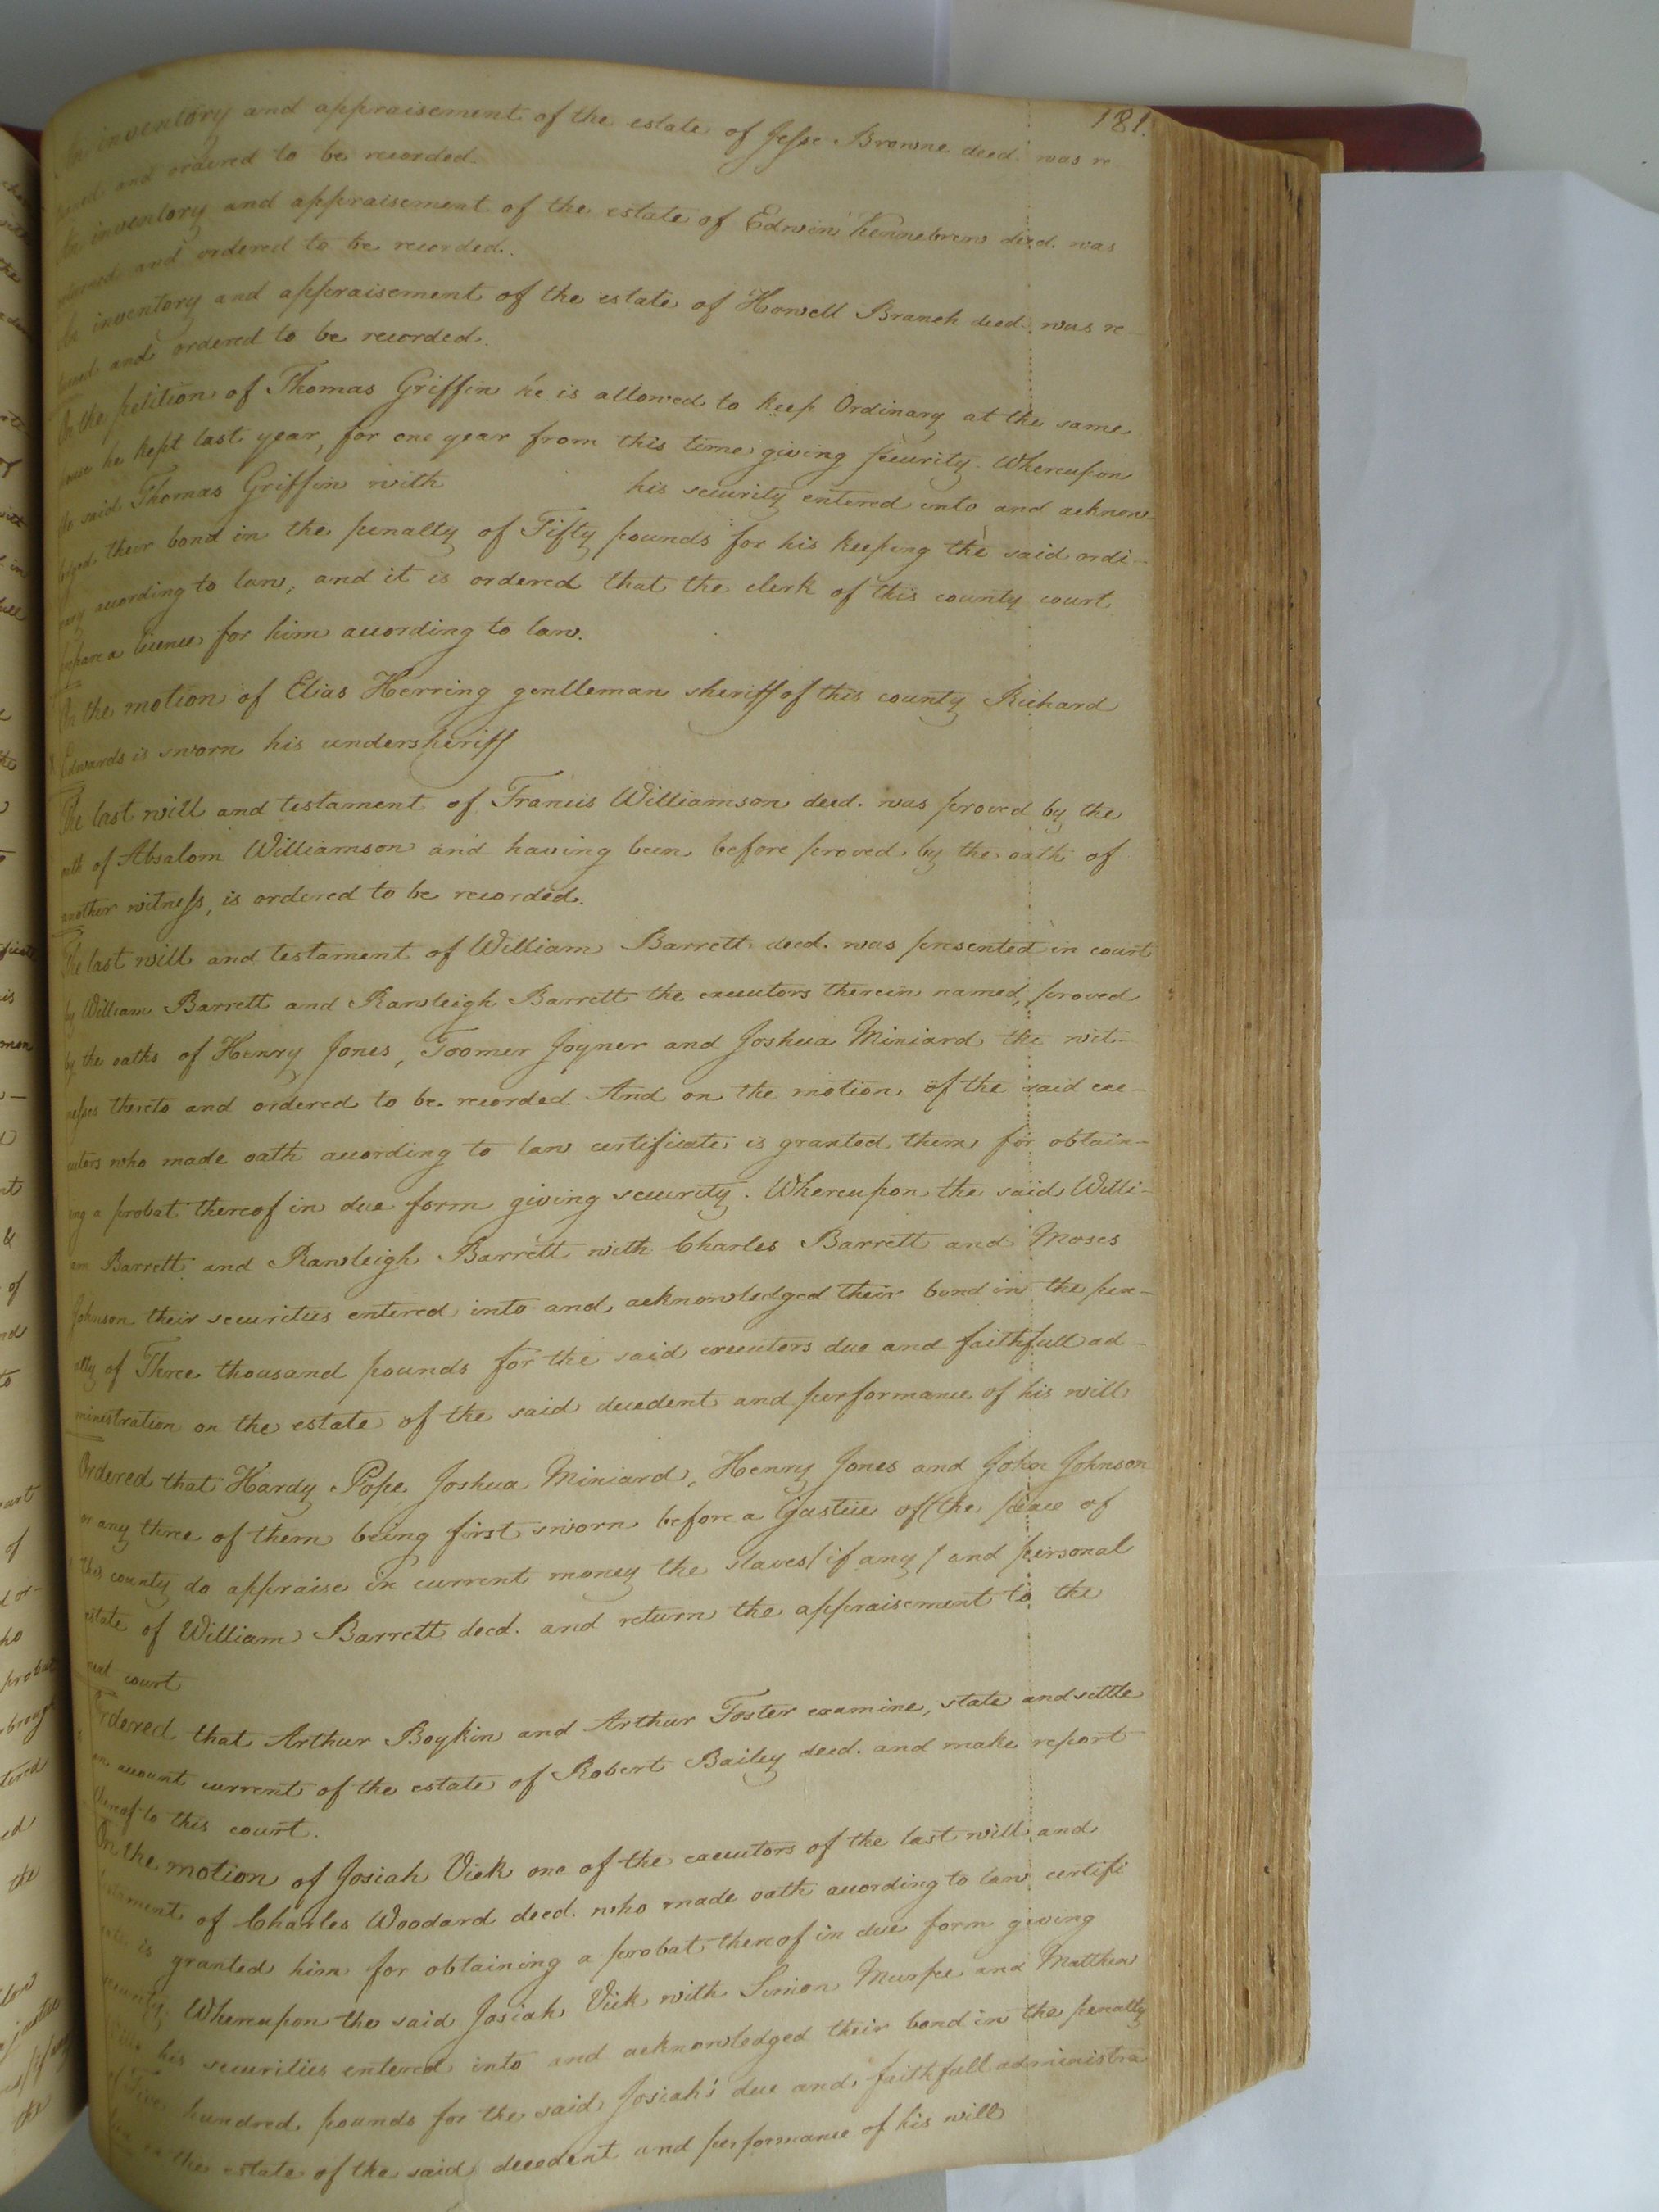 181.
An inventory and appraisement of the estate of Jesse Browne decd. was re
turned and ordered to be recorded.
An inventory and appraisement of the estate of Edwin Kennebrew decd. was
returned and ordered to be recorded.
An inventory and appraisement of the estate of Howell Branch decd. was re-
turned and ordered to be recorded.
On the petition of Thomas Griffin he is allowed to keep Ordinary at the same
house he kept last year, for one year from this time giving security. Whereupon
the said Thomas Griffin with his security entered into and acknow-
ledged their bond in the penalty of Fifty pounds for his keeping the said ordi-
nary according to law; and it is ordered that the clerk of this county court
prepare a licence for him according to law.
On the motion of Elias Herring gentleman sheriff of this county Richard
Edwards is sworn his undersheriff
The last will and testament of Francis Williamson decd. was proved by the
oath of Absalom Williamson and having been before proved by the oath of
another witness, is ordered to be recorded.
The last will and testament of William Barrett decd. was presented in court
by William Barrett and Rawleigh Barrett the executors therein named, proved
by the oaths of Henry Jones, Toomer Joyner and Joshua Miniard the wit-
nesses thereto and ordered to be recorded. And on the motion of the said exe-
cutors who made oath according to law certificate is granted them for obtain-
ing a probat thereof in due form giving security. Whereupon the said Willi-
am Barrett and Rawleigh Barrett with Charles Barrett and Moses
Johnson their securities entered into and acknowledged their bond in the pen-
alty of Three thousand pounds for the said executors due and faithfull ad-
ministration on the estate of the said decedent and performance of his will
Ordered that Hardy Pope Joshua Miniard, Henry Jones and John Johnson
or any three of them being first sworn before a Justice of the peace of
this county do appraise in current money the slaves/if any/ and personal
estate of William Barrett decd. and return the appraisement to the
next court
Ordered that Arthur Boykin and Arthur Foster examine, state and settle
an account current of the estate of Robert Bailey decd. and make report
thereof to this court.
On the motion of Josiah Vick one of the executors of the last will and
testament of Charles Woodard decd. who made oath according to law certifi
cate is granted him for obtaining a probat thereof in due form giving
security Whereupon the said Josiah Vick with Simon Murfee and Matthew
his securities entered into and acknowledged their bond in the penalty
of Five hundred pounds for the said Josiah's due and faithfull administra
tion on the estate of the said decedent and performance of his will